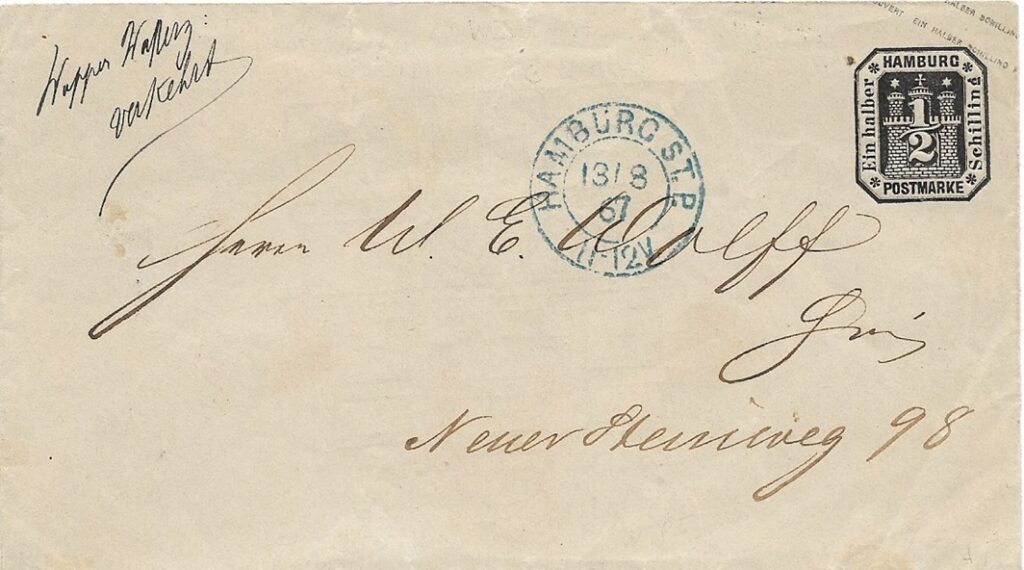 Wappen Wasserz:
verkehrt
HALBER SCHILLING
COUVERT EIN HALBER SCHILLING
* HAMBURG *
Ein halber
1/2
Schilling
* POSTMARKE *
HAMBURG ST.P.
13/8
67
11-12V
Herrn W. E. Wolff
Neuer Steinweg 98